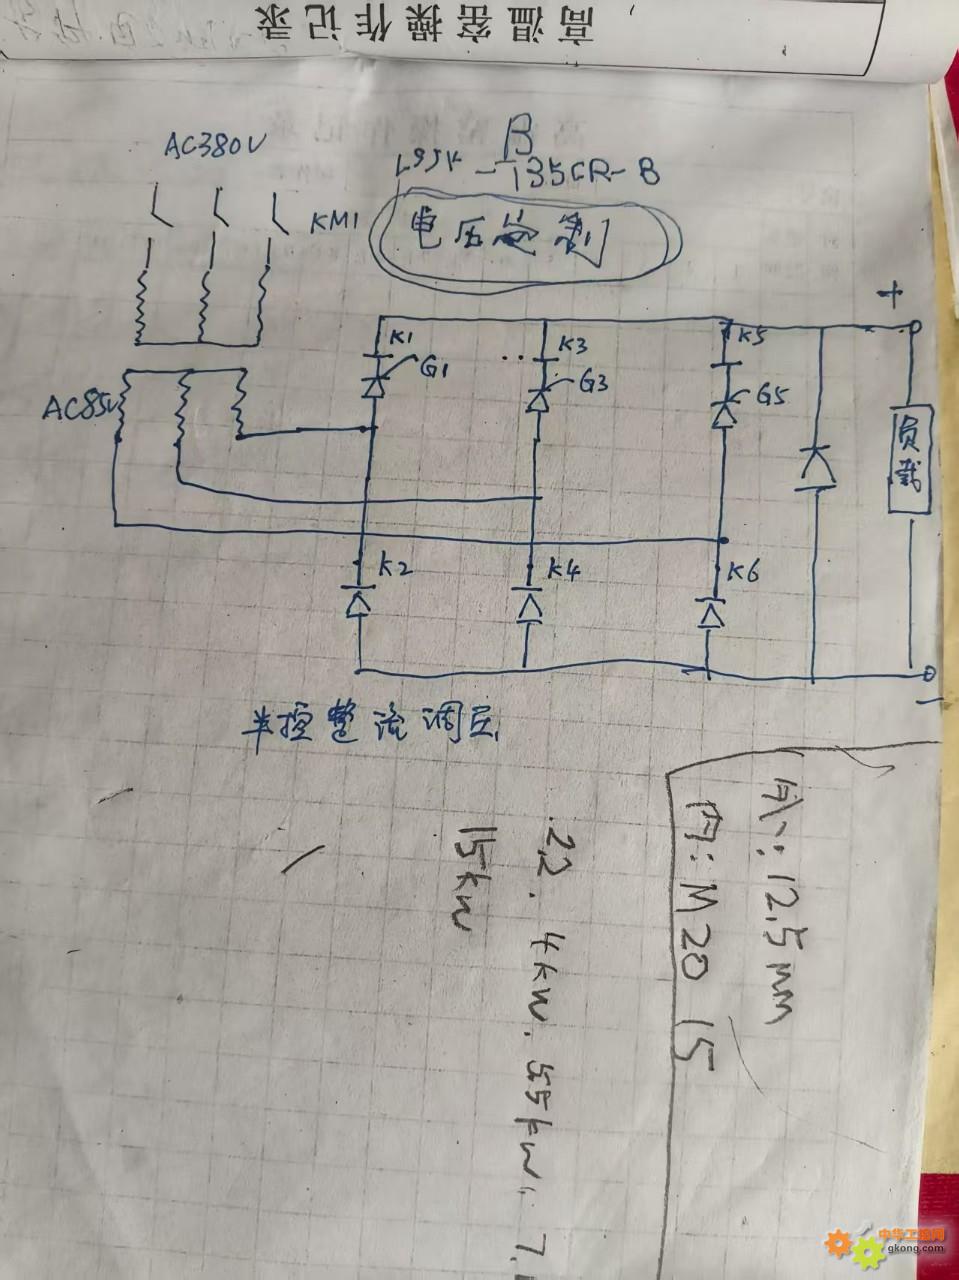 高温窑操作记录
AC380V
B
-T35CR-B
KM1
电压控制
+
K1
K3
K5
G1
G3
G5
AC85V
负载
K2
K4
K6
-
半控整流调压
外:12.5mm
内:M20 15
2.2. 4kw. 5.5kw. 7.
15kw
中华工控网
gkong.com